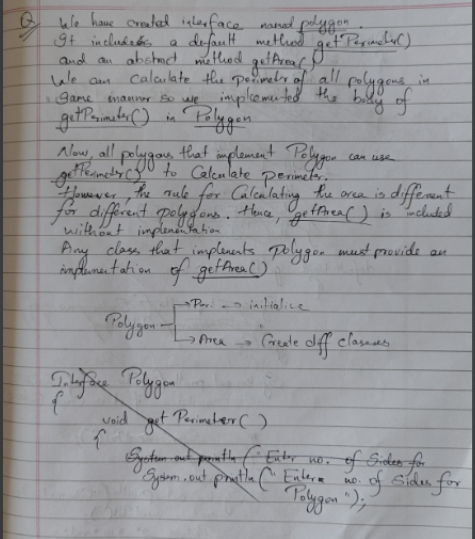 Q We have created interface named polygon.
It includes a default method getPerimeter()
and an abstract method getArea()
We can Calculate the perimeter of all polygons in
Same manner so we implemented the body of
getPerimeter() in Polygon
Now, all polygons that implement Polygon can use
getPerimeter() to Calculate perimeter.
However, the rule for Calculating the area is different
for different polygons. Hence, getArea() is included
without implementation
Any class that implements Polygon must provide an
implementation of getArea()
→ Peri → initialise
Polygon
→ Area → Create diff classes
Interface Polygon
{
void get Perimeter ( )
{
System.out.println ("Enter no. of Sides for
System.out.println (" Enter no. of Sides for
Polygon ");